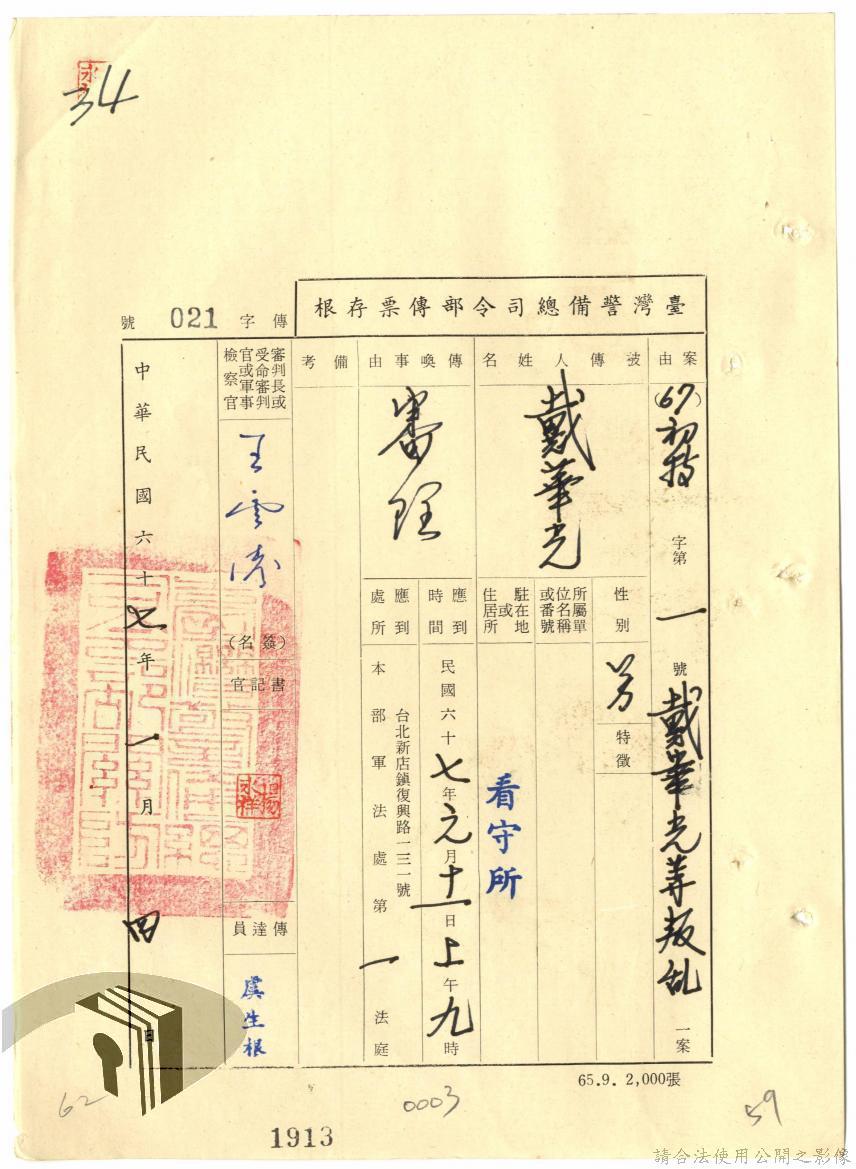 34
臺灣警備總司令部傳票存根
傳字 021 號
案由
(67)初特字第一號戴華光等叛乱一案
被傳人姓名
戴華光
性別
男
特徵
所屬單位名稱或番號
駐在地或住居所
看守所
傳喚事由
審理
應到時間
民國六十七年元月十一日上午九時
應到處所
本部軍法處第一法庭
台北新店鎮復興路一三一號
備考
審判長或受命審判官或軍事檢察官
王雲濤
(簽名)
書記官
傳達員
虞生根
中華民國六十七年一月四日
65.9. 2,000張
62
0003
59
1913
請合法使用公開之影像